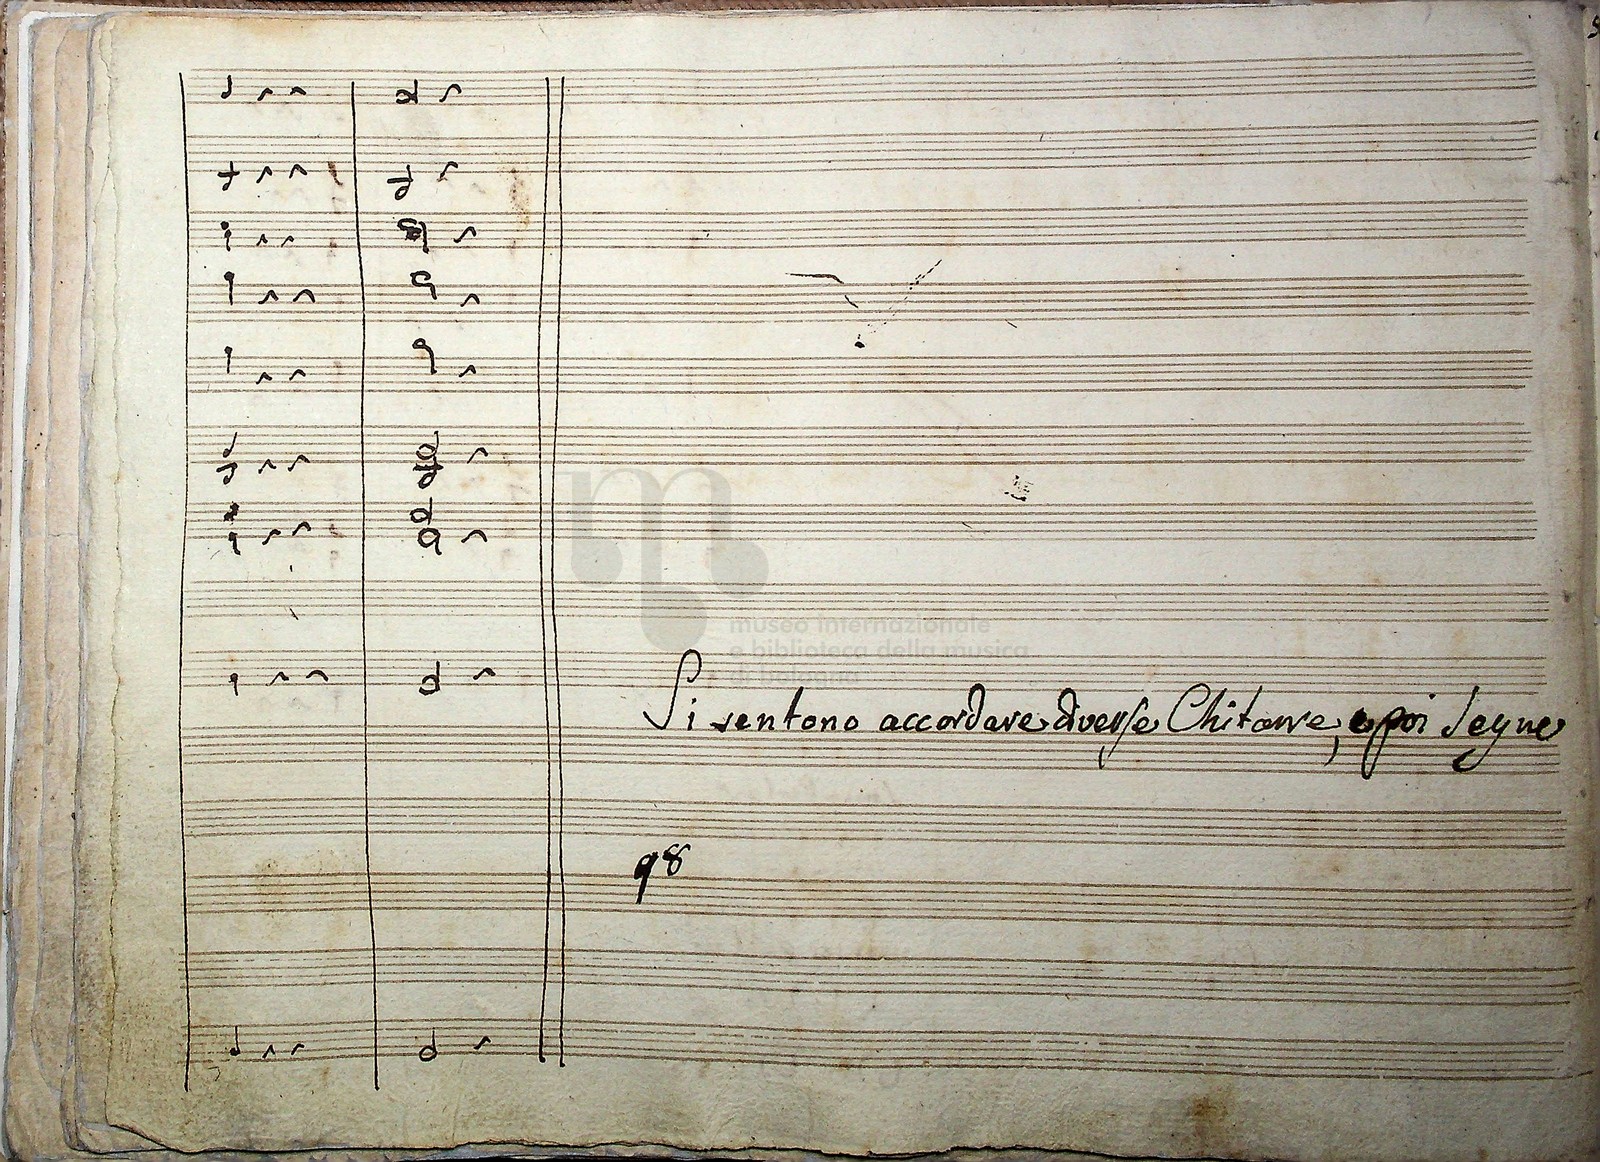 museo internazionale
e biblioteca della musica
di bologna
Si sentono accordare diverse Chitarre, e poi Segue
98